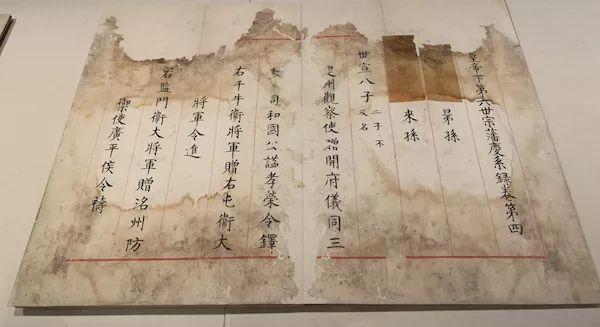 皇帝下第六世宗藩慶系錄卷第四
晜孫
來孫
世宣八子 二子不及名
州觀察使贈開府儀同三
司和國公謚孝榮令鐸
右千牛衛將軍贈右屯衛大
將軍令進
右監門衛大將軍贈洺州防
禦使廣平侯令禱